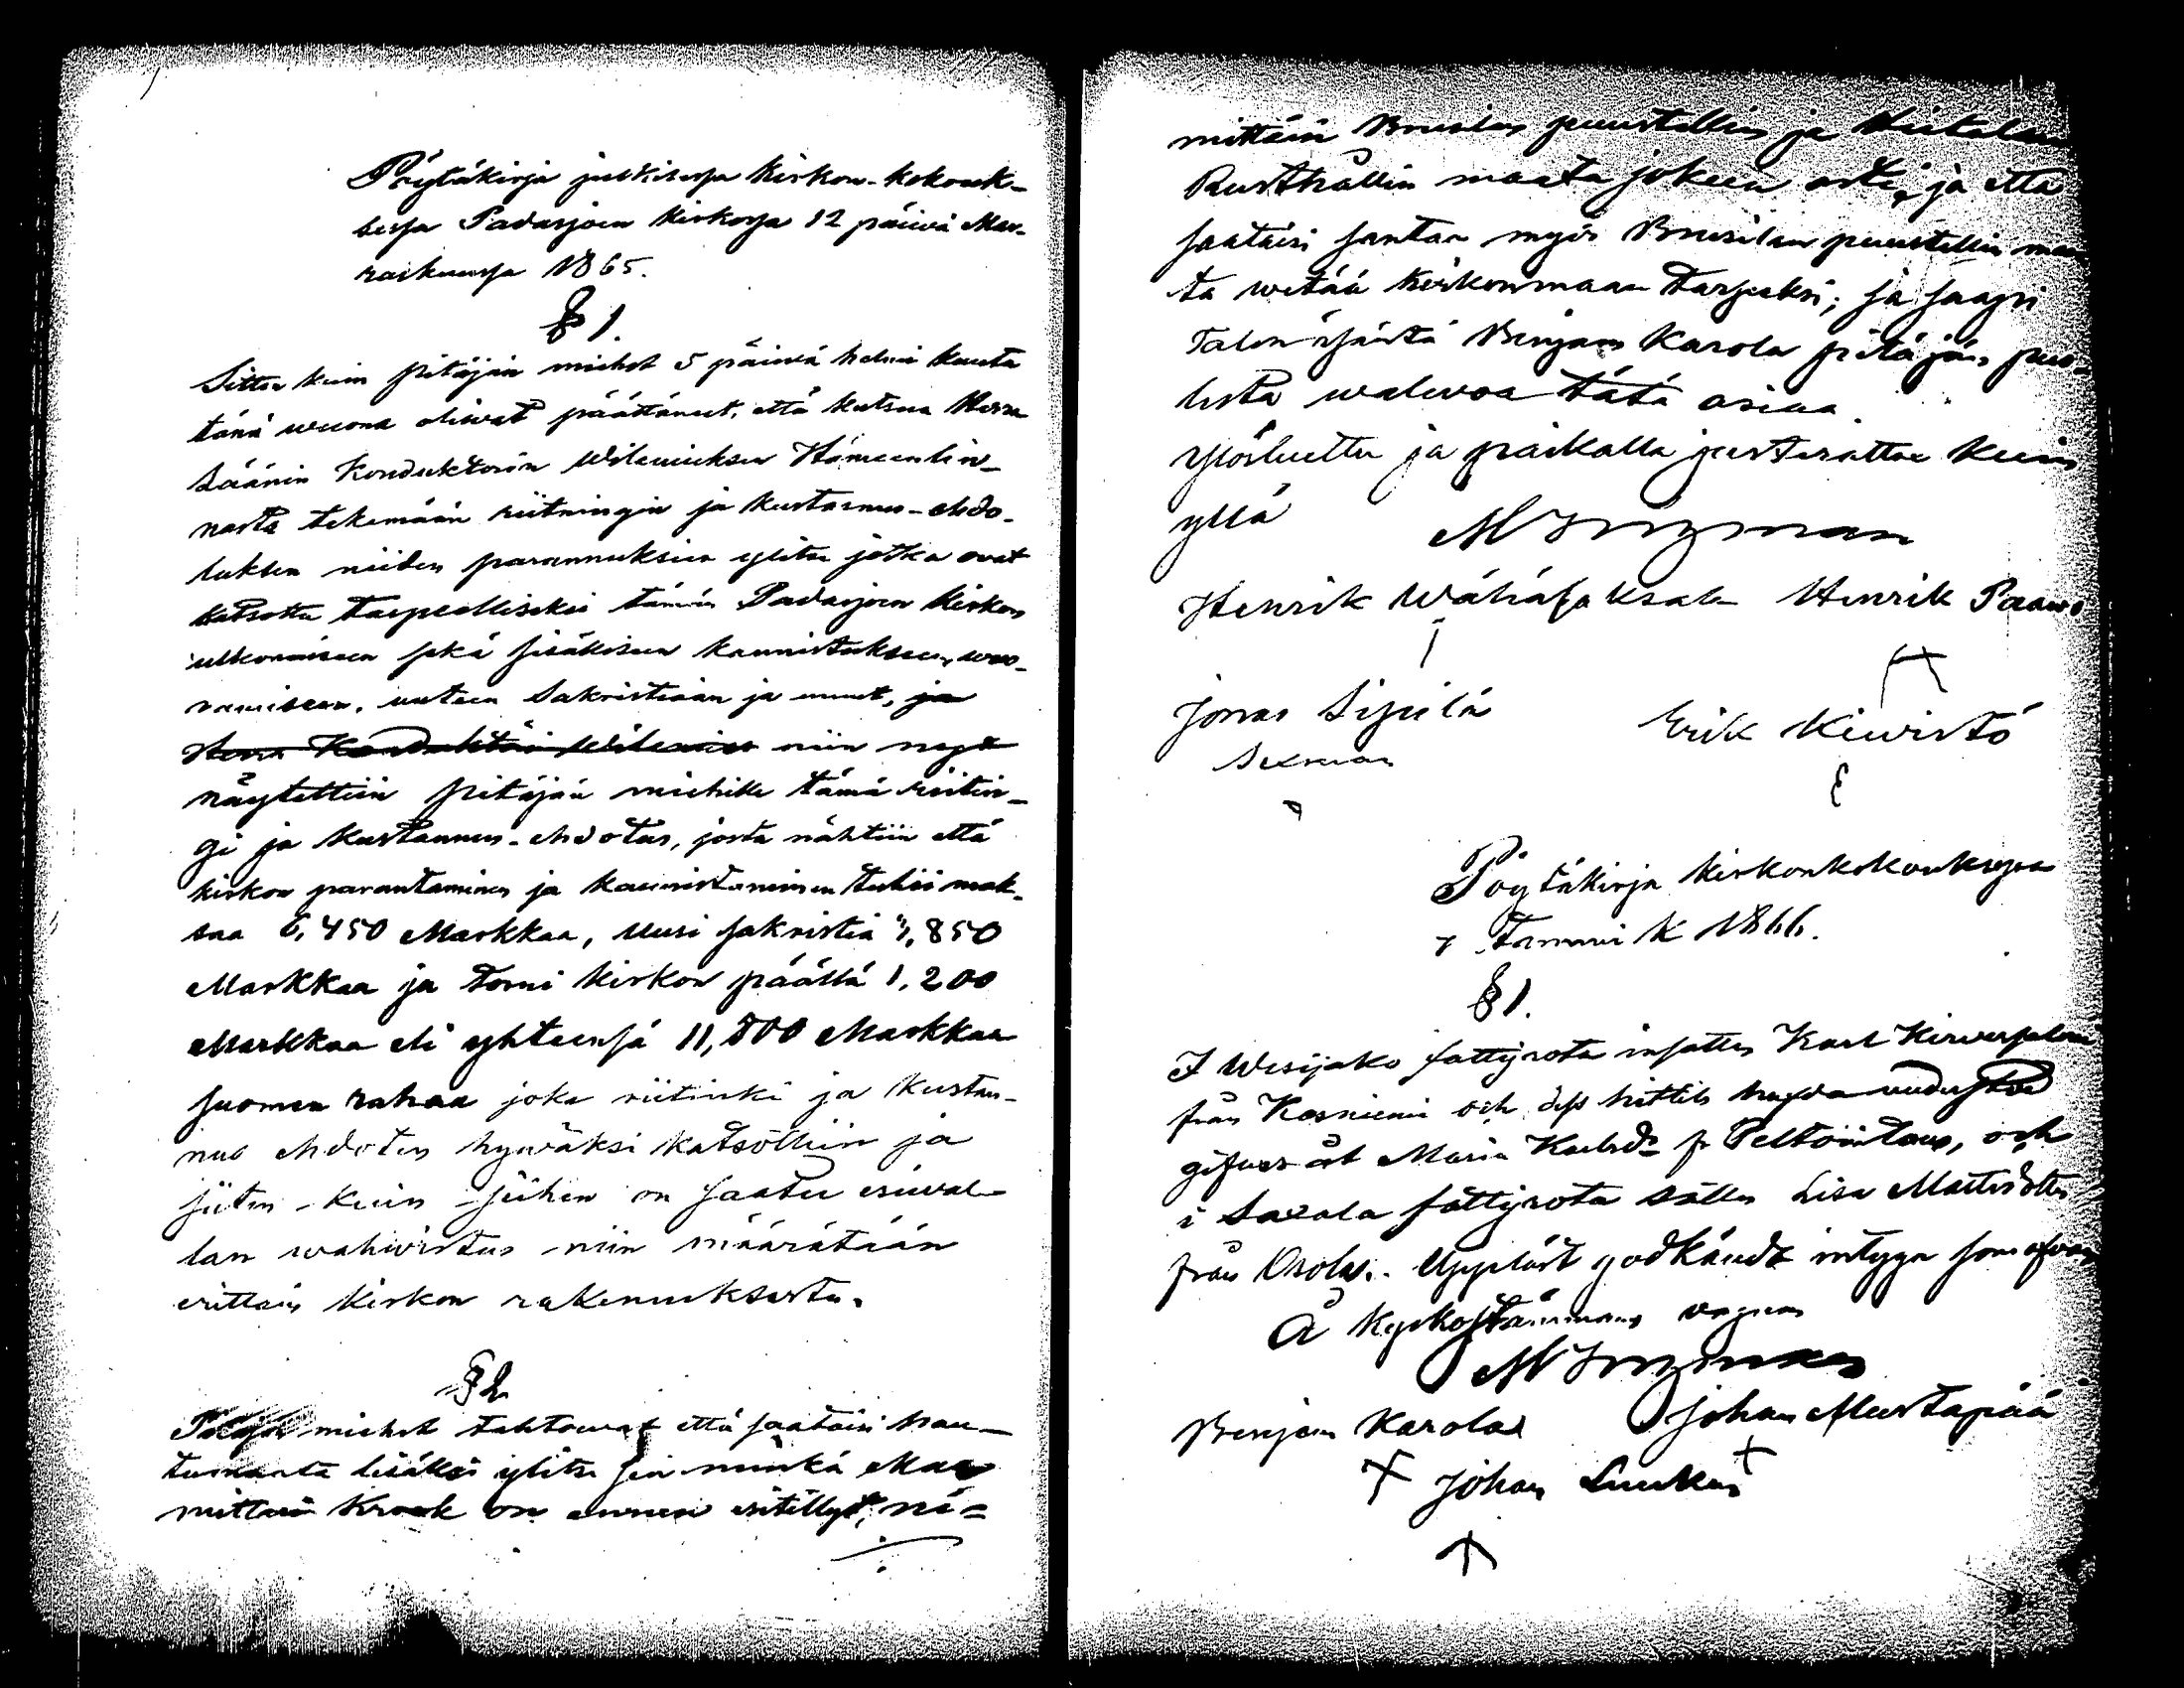 Pöytäkirja julkisessa Kirkon-kokouk-
sessa Padasjoen Kirkossa 12 päivä Mar-
raskuussa 1865.
§ 1.
Sitten kuin pitäjän miehet 5 päivä helmi kuuta
tänä wuona oliwat päättäneet, että kutsua Herra
Läänin Konduktorin Wileniuksen Hämeenlin-
nasta tekemään riitningin ja kustannus-ehdo-
tuksen niiden parannuksien ylitse jotka ovat
katsottu tarpeelliseksi tämän Padasjoen Kirkon
ulkonaiseen sekä sisälliseen kaunistukseen, woo-
raamiseen, uuteen Sakristiaan ja muut, ja
Herra Konduktöri Wilenius niin nyt
näytettiin pitäjän miehille tämä riitin-
gi ja kustannus-ehdotus, josta nähtiin että
kirkon parantaminen ja kaunistaminen tulisi mak-
saa 6,450 Markkaa, uusi sakristia 3,850
Markkaa ja torni kirkon päällä 1,200
Markkaa eli yhteensä 11,500 Markkaa
Suomen rahaa joka riitinki ja kustan-
nus ehdotus hywäksi katsottiin ja
siten kuin siihen on saatu esiwal-
lan wahwistus niin määrätään
erittäin kirkon rakennuksesta.
§ 2
Pitäjän miehet tahtowat että saataisi hau-
tausmaata lisäksi ylitse sen minkä Maa
mittari Krook on ennen esitellyt, ni=
mittäin Brusilan puustellin ja
Rusthållin maata jokeen asti, ja että
saataisi santaa myös Brusilan puustellin maa
ta wetää kirkonmaan tarpeeksi; ja saapi
Talon isäntä Benjam Karola pitäjän puo-
lesta walwoa tätä asiaa.
Ylösluettu ja paikalla justerattu kuin
yllä
M Ingman
Henrik Wähäsaksala Henrik Paawo
Jonas Sipilä Erik Kiwistö
Sexman
Pöytäkirja kirkonkokouksessa
7 Tammi K 1866.
§ 1.
I Wesijako fattigrota insattes Karl
från Kasniemi och dess hittills
gifves åt Maria Karlsdr fr Peltointaus, och
i Saxala fattigrota sättes Lisa Mattsdotter
från Osola. Uppläst godkändt intyga som ofvan
Å Kyrkostämmans vägnar
M Ingman
Benjam Karola Johan Mustapää
Johan Luukas